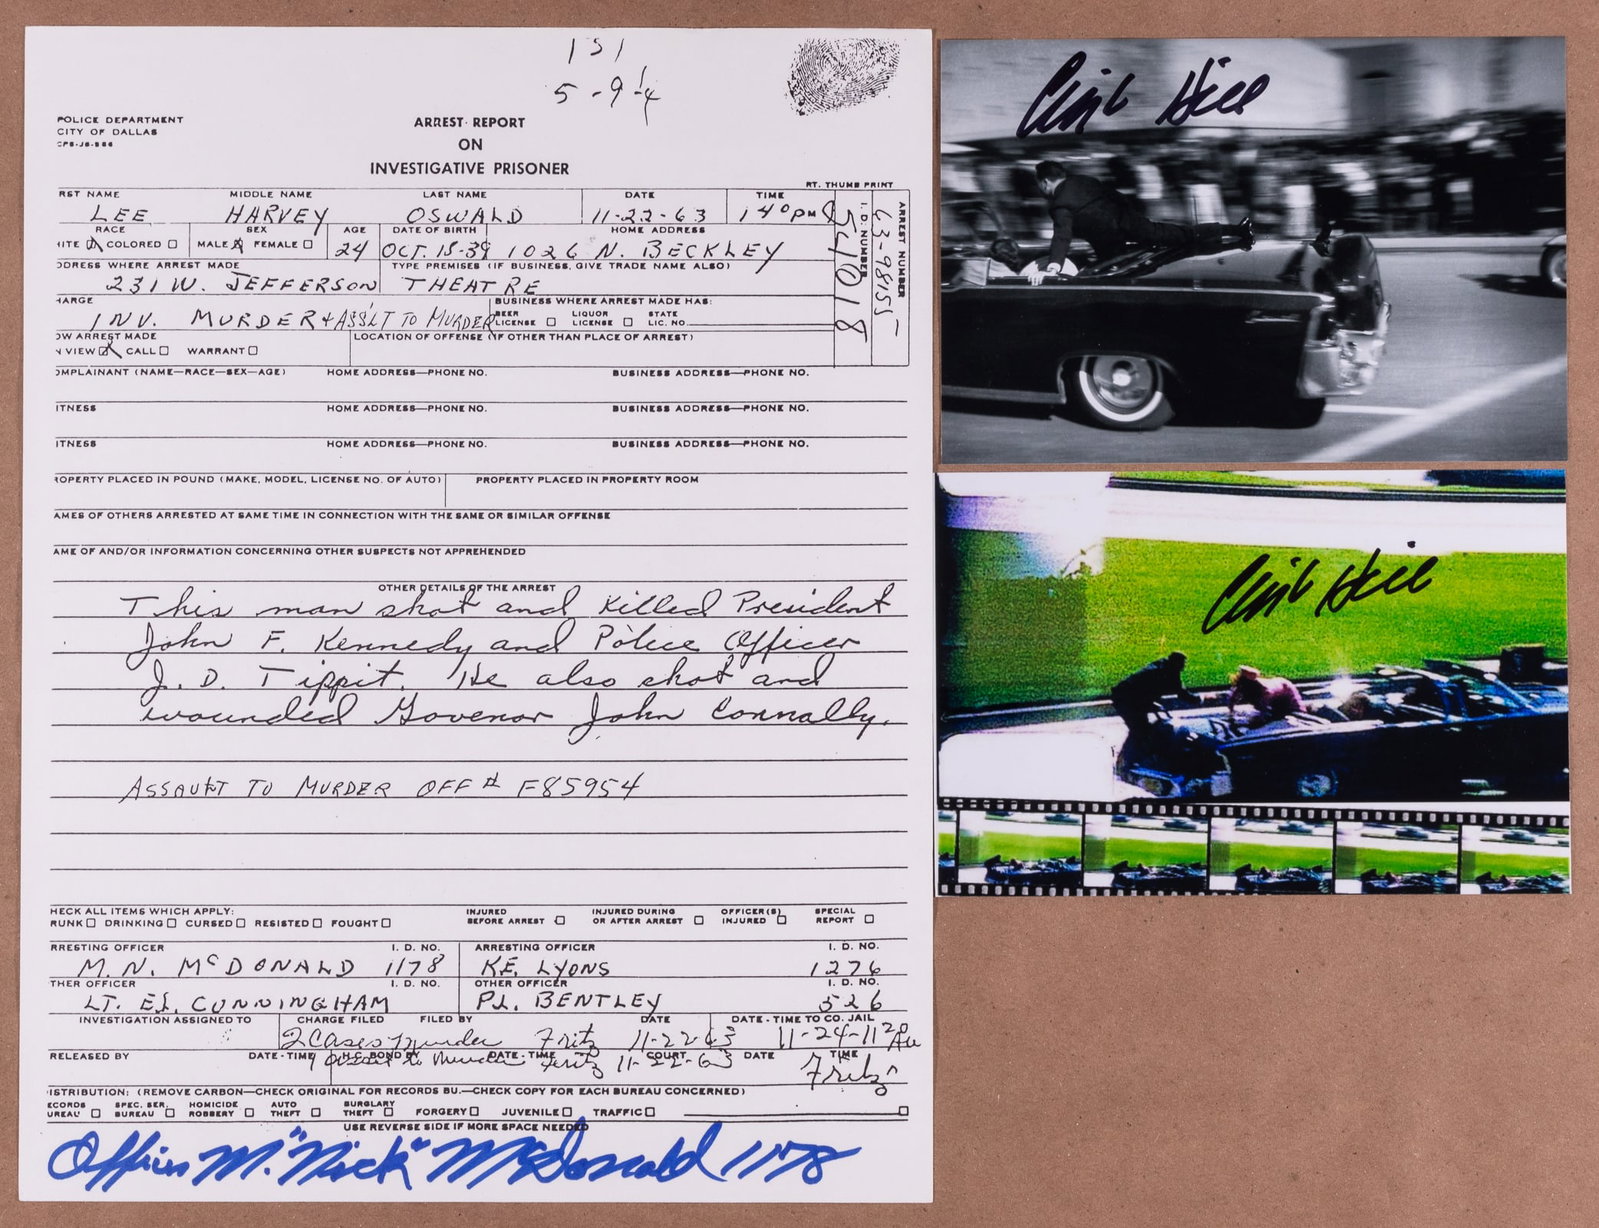 131
5-9¼
POLICE DEPARTMENT
CITY OF DALLAS
ARREST REPORT
ON
INVESTIGATIVE PRISONER
RT. THUMB PRINT
RST NAME MIDDLE NAME LAST NAME DATE TIME
LEE HARVEY OSWALD 11-22-63 1 40 PM
RACE SEX AGE DATE OF BIRTH HOME ADDRESS
HITE COLORED MALE FEMALE 24 OCT. 18-39 1026 N. BECKLEY
I. D. NUMBER
54018
ARREST NUMBER
63-98155
DDRESS WHERE ARREST MADE TYPE PREMISES (IF BUSINESS, GIVE TRADE NAME ALSO)
231 W. JEFFERSON THEATRE
HARGE BUSINESS WHERE ARREST MADE HAS:
INV. MURDER + ASS'LT TO MURDER BEER LICENSE LIQUOR LICENSE STATE LIC. NO.
OW ARREST MADE LOCATION OF OFFENSE (IF OTHER THAN PLACE OF ARREST)
N VIEW CALL WARRANT
OMPLAINANT (NAME—RACE—SEX—AGE) HOME ADDRESS—PHONE NO. BUSINESS ADDRESS—PHONE NO.
ITNESS HOME ADDRESS—PHONE NO. BUSINESS ADDRESS—PHONE NO.
ITNESS HOME ADDRESS—PHONE NO. BUSINESS ADDRESS—PHONE NO.
ROPERTY PLACED IN POUND (MAKE, MODEL, LICENSE NO. OF AUTO) PROPERTY PLACED IN PROPERTY ROOM
AMES OF OTHERS ARRESTED AT SAME TIME IN CONNECTION WITH THE SAME OR SIMILAR OFFENSE
AME OF AND/OR INFORMATION CONCERNING OTHER SUSPECTS NOT APPREHENDED
OTHER DETAILS OF THE ARREST
This man shot and killed President
John F. Kennedy and Police Officer
J. D. Tippit. He also shot and
wounded Govenor John Connally.
ASSAULT TO MURDER OFF # F85954
HECK ALL ITEMS WHICH APPLY:
RUNK DRINKING CURSED RESISTED FOUGHT INJURED BEFORE ARREST INJURED DURING OR AFTER ARREST OFFICER(S) INJURED SPECIAL REPORT
RRESTING OFFICER I. D. NO. ARRESTING OFFICER I. D. NO.
M. N. McDONALD 1178 K.E. LYONS 1276
THER OFFICER I. D. NO. OTHER OFFICER I. D. NO.
LT. E.L. CUNNINGHAM P.L. BENTLEY 526
INVESTIGATION ASSIGNED TO CHARGE FILED FILED BY DATE DATE - TIME TO CO. JAIL
2 Cases murder Fritz 11-22-63 11-24-11 20 AM
RELEASED BY DATE - TIME H.C. BOND BY DATE - TIME COURT DATE TIME
1 assault to Murder Fritz 11-22-63 Fritz
ISTRIBUTION: (REMOVE CARBON—CHECK ORIGINAL FOR RECORDS BU.—CHECK COPY FOR EACH BUREAU CONCERNED)
ECORDS UREAU SPEC. SER. BUREAU HOMICIDE ROBBERY AUTO THEFT BURGLARY THEFT FORGERY JUVENILE TRAFFIC
USE REVERSE SIDE IF MORE SPACE NEEDED
Officer M. "Nick" McDonald 1178
Clint Hill
Clint Hill